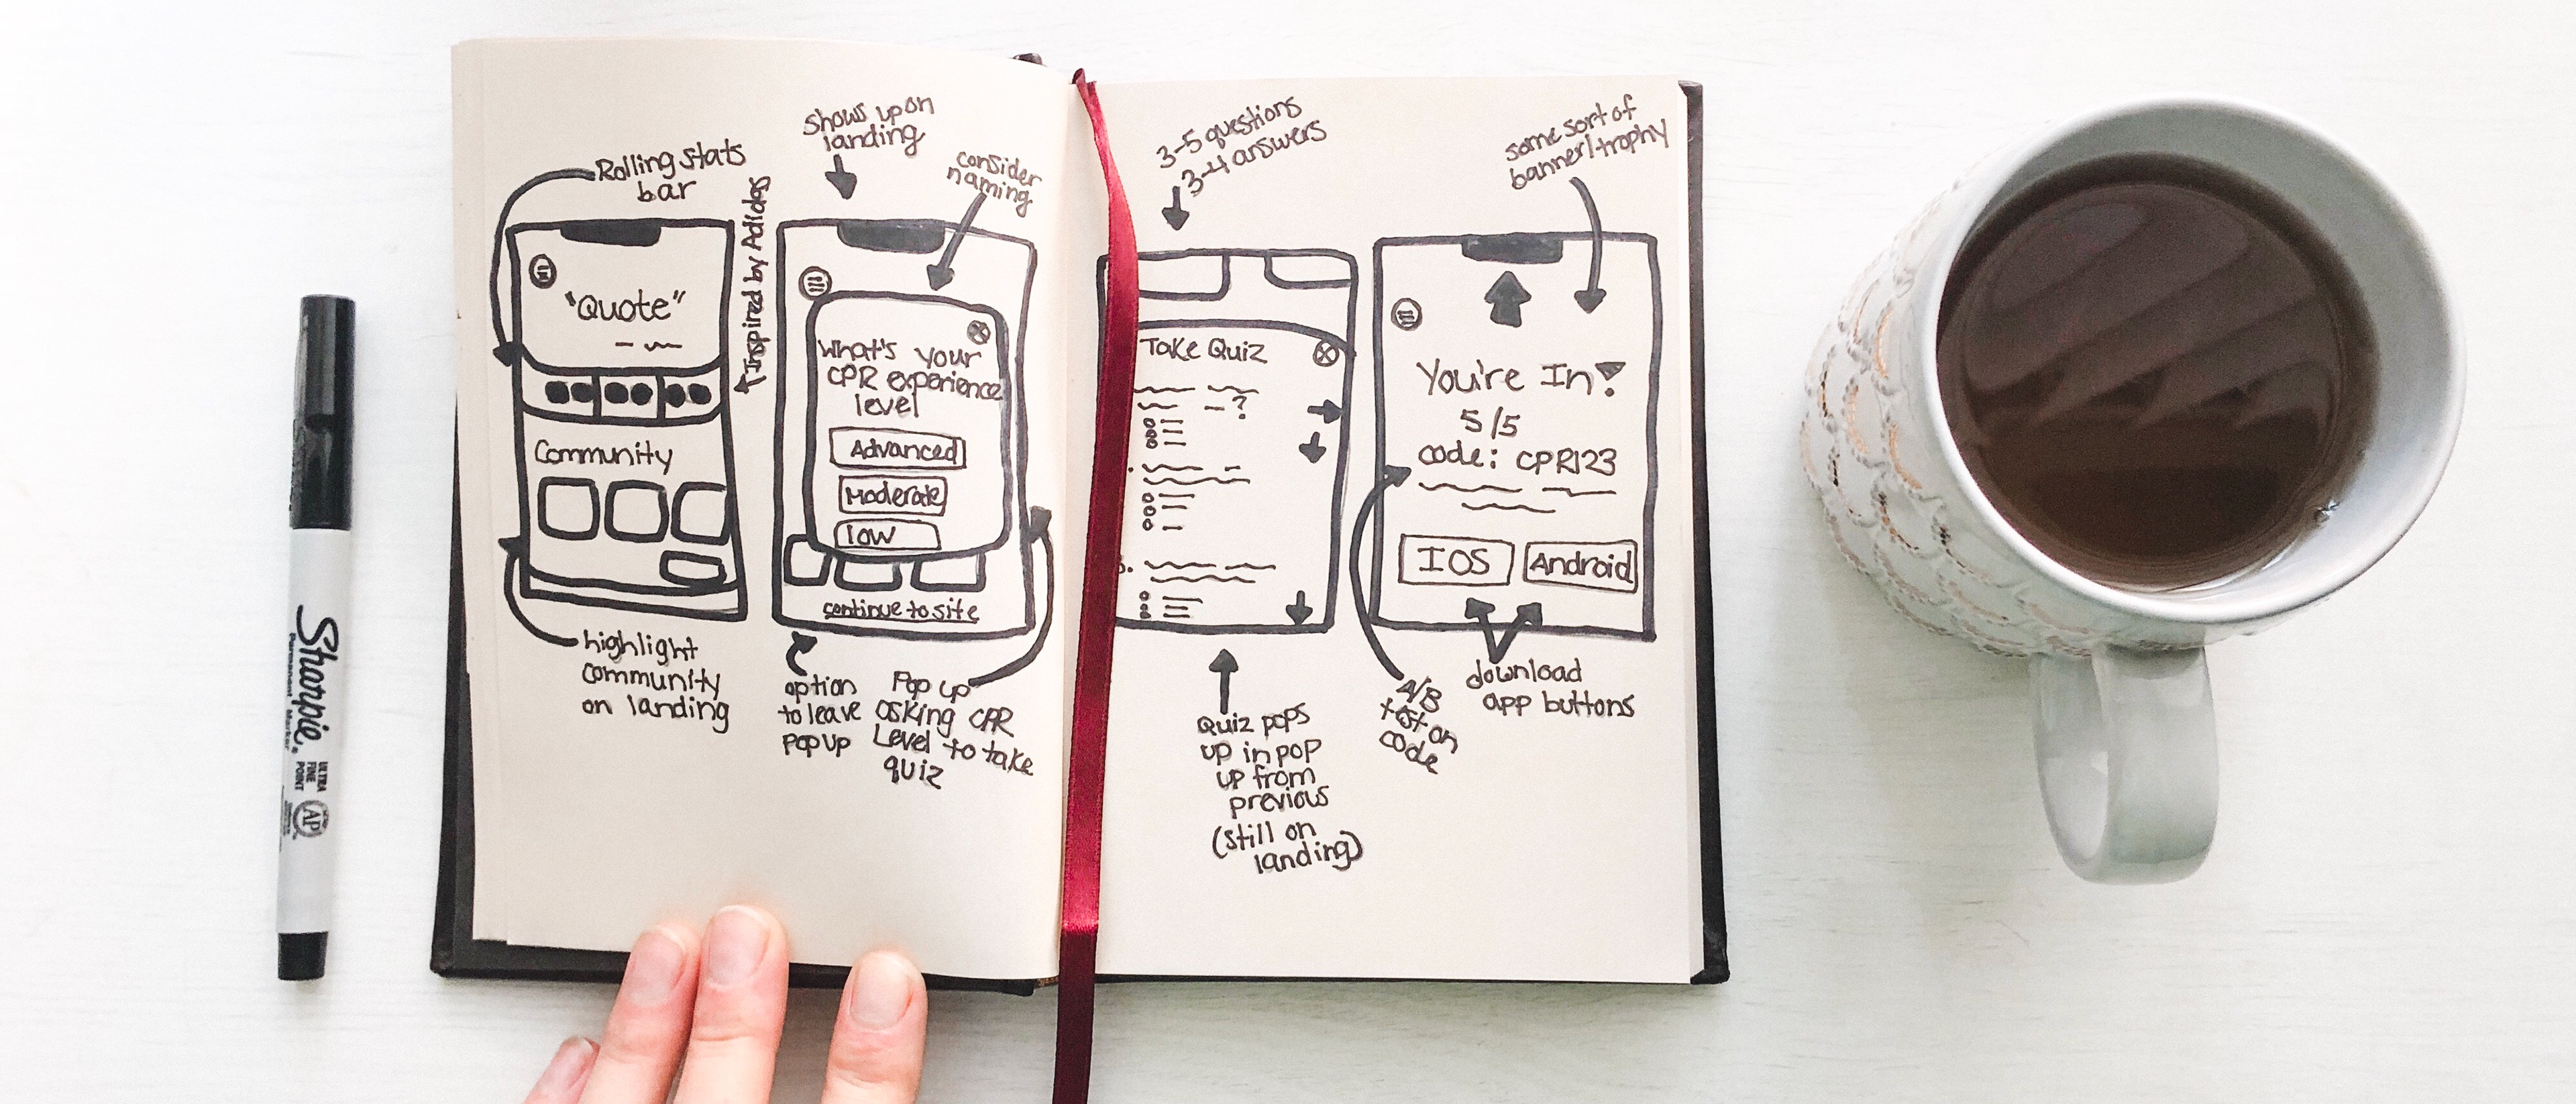 Rolling stats
bar
"Quote"
Community
highlight
community
on landing
Inspired by Adidas
Shows up on
landing
consider
naming
What's your
CPR experience
level
Advanced
Moderate
low
continue to site
option
to leave
pop up
Pop up
asking CPR
Level to take
quiz
3-5 questions
3-4 answers
Take Quiz
?
Quiz pops
up in pop
up from
previous
(still on
landing)
some sort of
banner/trophy
You're In!
5/5
code: CPR123
IOS
Android
A/B
test on
code
download
app buttons
Sharpie.
Permanent Marker
ULTRA
FINE
POINT
AP